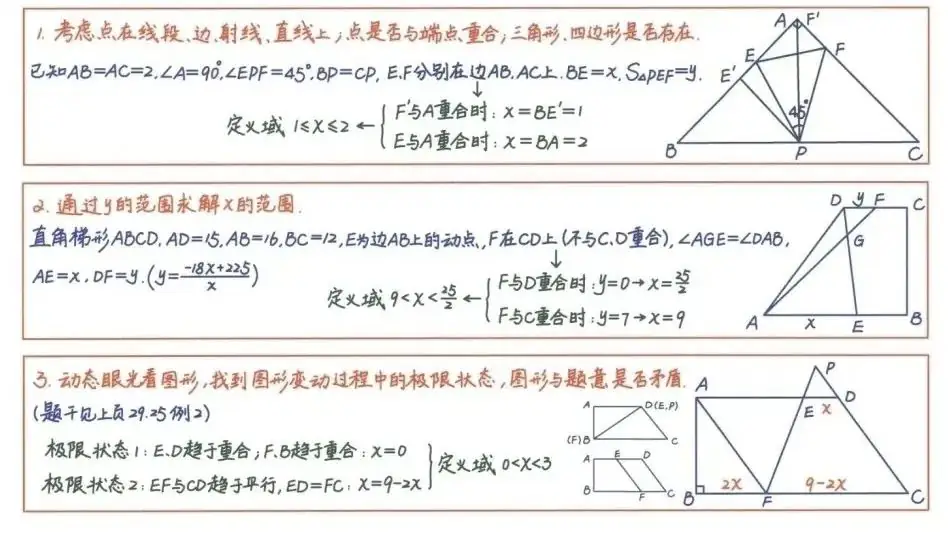 1. 考虑点在线段、边、射线、直线上；点是否与端点重合；三角形、四边形是否存在.
已知AB=AC=2,∠A=90°,∠EPF=45°,BP=CP, E,F分别在边AB,AC上. BE=x, S△PEF=y.
定义域 1≤x≤2 ← { F'与A重合时: x=BE'=1
E与A重合时: x=BA=2
A F'
E F
E'
45°
B P C
2. 通过y的范围求解x的范围.
直角梯形ABCD, AD=15, AB=16, BC=12, E为边AB上的动点, F在CD上(不与C,D重合), ∠AGE=∠DAB,
AE=x, DF=y. (y=\frac{-18x+225}{x})
定义域 9<x<\frac{25}{2} ← { F与D重合时: y=0→x=\frac{25}{2}
F与C重合时: y=7→x=9
D y F C
G
A x E B
3. 动态眼光看图形, 找到图形变动过程中的极限状态, 图形与题意是否矛盾.
(题干见上页29.25例2)
极限状态1: E,D趋于重合; F,B趋于重合: x=0
极限状态2: EF与CD趋于平行, ED=FC: x=9-2x
} 定义域 0<x<3
A D(E,P)
(F)B C
A E D
B F C
P
A E x D
B 2x F 9-2x C